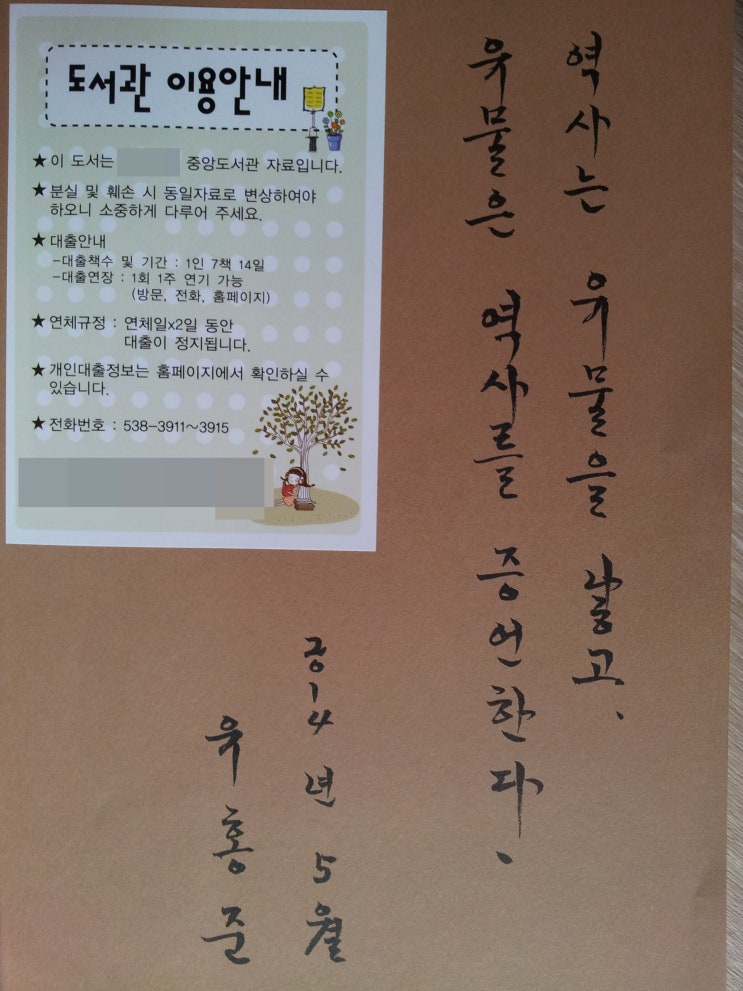 도서관 이용안내
★이 도서는 중앙도서관 자료입니다.
★분실 및 훼손 시 동일자료로 변상하여야
하오니 소중하게 다루어 주세요.
★대출안내
-대출책수 및 기간 : 1인 7책 14일
-대출연장 : 1회 1주 연기 가능
(방문, 전화, 홈페이지)
★연체규정 : 연체일x2일 동안
대출이 정지됩니다.
★개인대출정보는 홈페이지에서 확인하실 수
있습니다.
★전화번호 : 538-3911~3915
역사는 유물을 낳고.
유물은 역사를 증언한다.
공14년 5월
유홍준